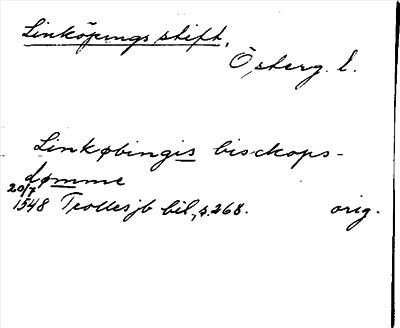 Linköpings stift,
Österg. l.
Linkøbingis bisckops-
dømme
20/7
1548 Trolles jb bil, s. 268. orig.